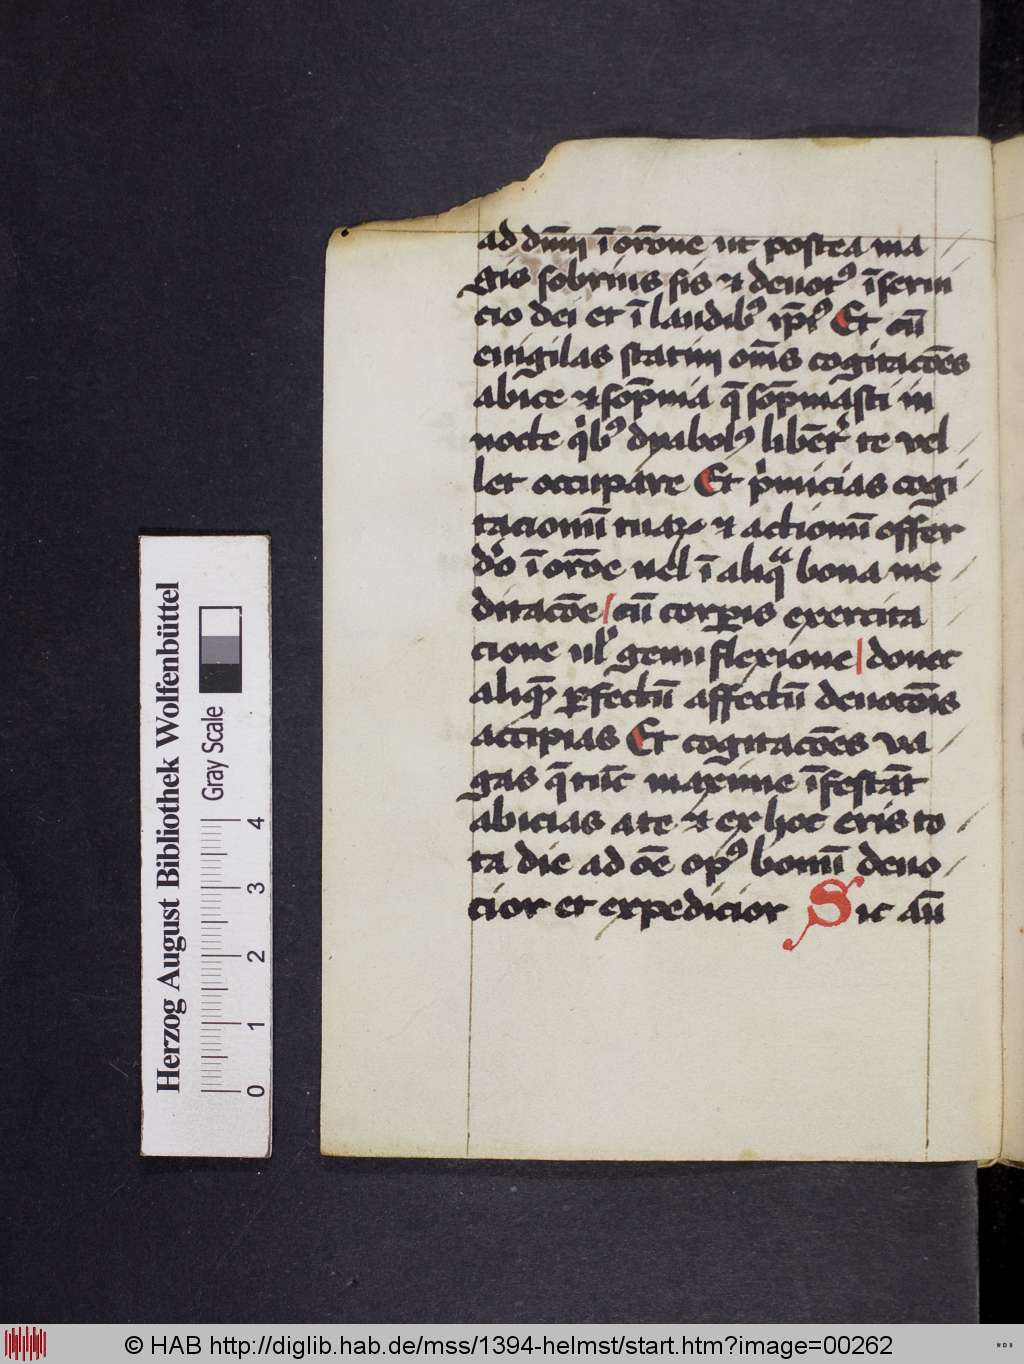 ad dnm̄ ī or̄one ut postea ma
gis sobrius sis ⁊ deuotꝰ ī serui
cio dei et ī laudibꝰ ip̄iꝰ Et cū
euigilas statim om̄s cogitacōes
abice ⁊ sōpnia q̄ sōpniasti in
nocte qͥbꝰ dyabolꝰ libent̄ te vel
let occupare Et pͥmicias cogi
tacionū tuaꝝ ⁊ actionū offer
dͦo ī or̄oe uel ī aliqͣ bona me
ditacōe cū corꝑis exercita
cione ul̓ genu flexione donec
aliquē ꝑfectū affectū deuocōis
accipias Et cogitacōes va
gas q̄ tūc maxime īfestāt
abicias a te ⁊ ex hoc eris to
ta die ad oē opꝰ bonū deuo
cior et expedicior Sic aū
Herzog August Bibliothek Wolfenbüttel
Gray Scale
0 1 2 3 4
© HAB http://diglib.hab.de/mss/1394-helmst/start.htm?image=00262